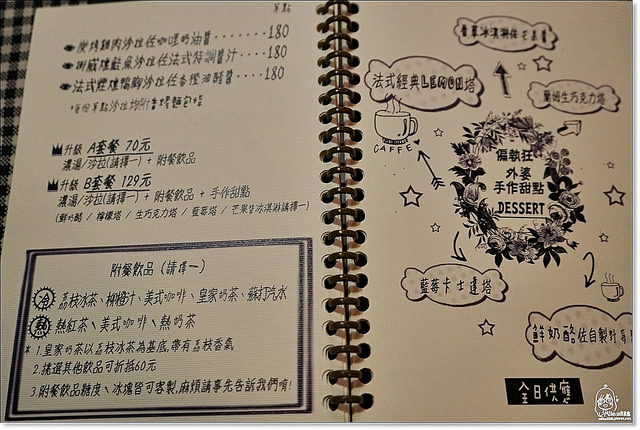 單點
炭烤雞肉沙拉佐咖哩奶油醬.......180
挪威燻鮭魚沙拉佐法式特調醬汁....180
法式煙燻鴨胸沙拉佐香橙油醋醬...180
每份單點沙拉均附香烤麵包條
升級 A套餐 70元
濃湯/沙拉(請擇一) + 附餐飲品
升級 B套餐 129元
濃湯/沙拉(請擇一) + 附餐飲品 + 手作甜點
(鮮奶酪 / 檸檬塔 / 生巧克力塔 / 藍莓塔 / 芒果冰淇淋請擇一)
附餐飲品 (請擇一)
冷 荔枝冰茶、柳橙汁、美式咖啡、皇家奶茶、蘇打汽水
熱 熱紅茶、美式咖啡、熱奶茶
* 1.皇家奶茶以荔枝冰茶為基底,帶有荔枝香氣
2.挑選其他飲品可折抵60元
3.附餐飲品糖度、冰塊皆可客製,麻煩請事先告訴我們唷!
香草冰淇淋佐芒果
法式經典LEMON塔
蘭姆生巧克力塔
CAFFE
偏執狂
外婆
手作甜點
DESSERT
藍莓卡士達塔
鮮奶酪佐自製
全日供應